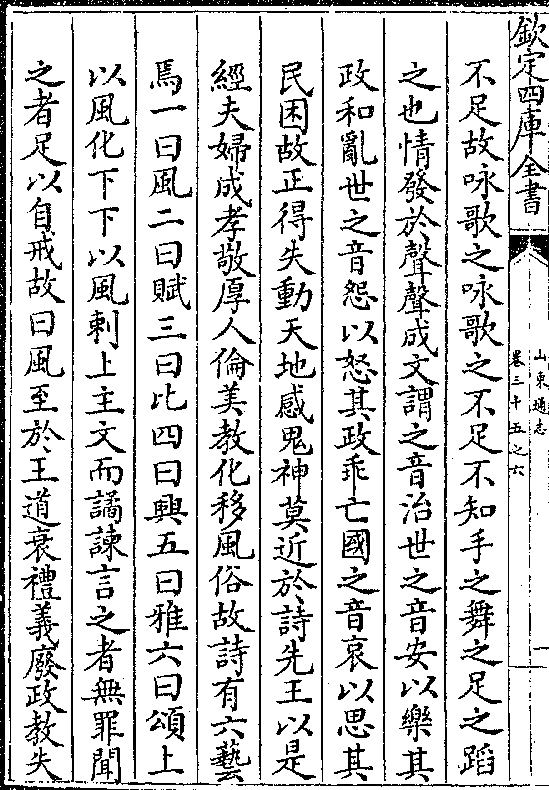 欽定四庫全書
山東通志
卷三十五之六
一
不足故咏歌之咏歌之不足不知手之舞之足之蹈
之也情發於聲聲成文謂之音治世之音安以樂其
政和亂世之音怨以怒其政乖亡國之音哀以思其
民困故正得失動天地感鬼神莫近於詩先王以是
經夫婦成孝敬厚人倫美教化移風俗故詩有六藝
焉一曰風二曰賦三曰比四曰興五曰雅六曰頌上
以風化下下以風刺上主文而譎諫言之者無罪聞
之者足以自戒故曰風至於王道衰禮義廢政教失